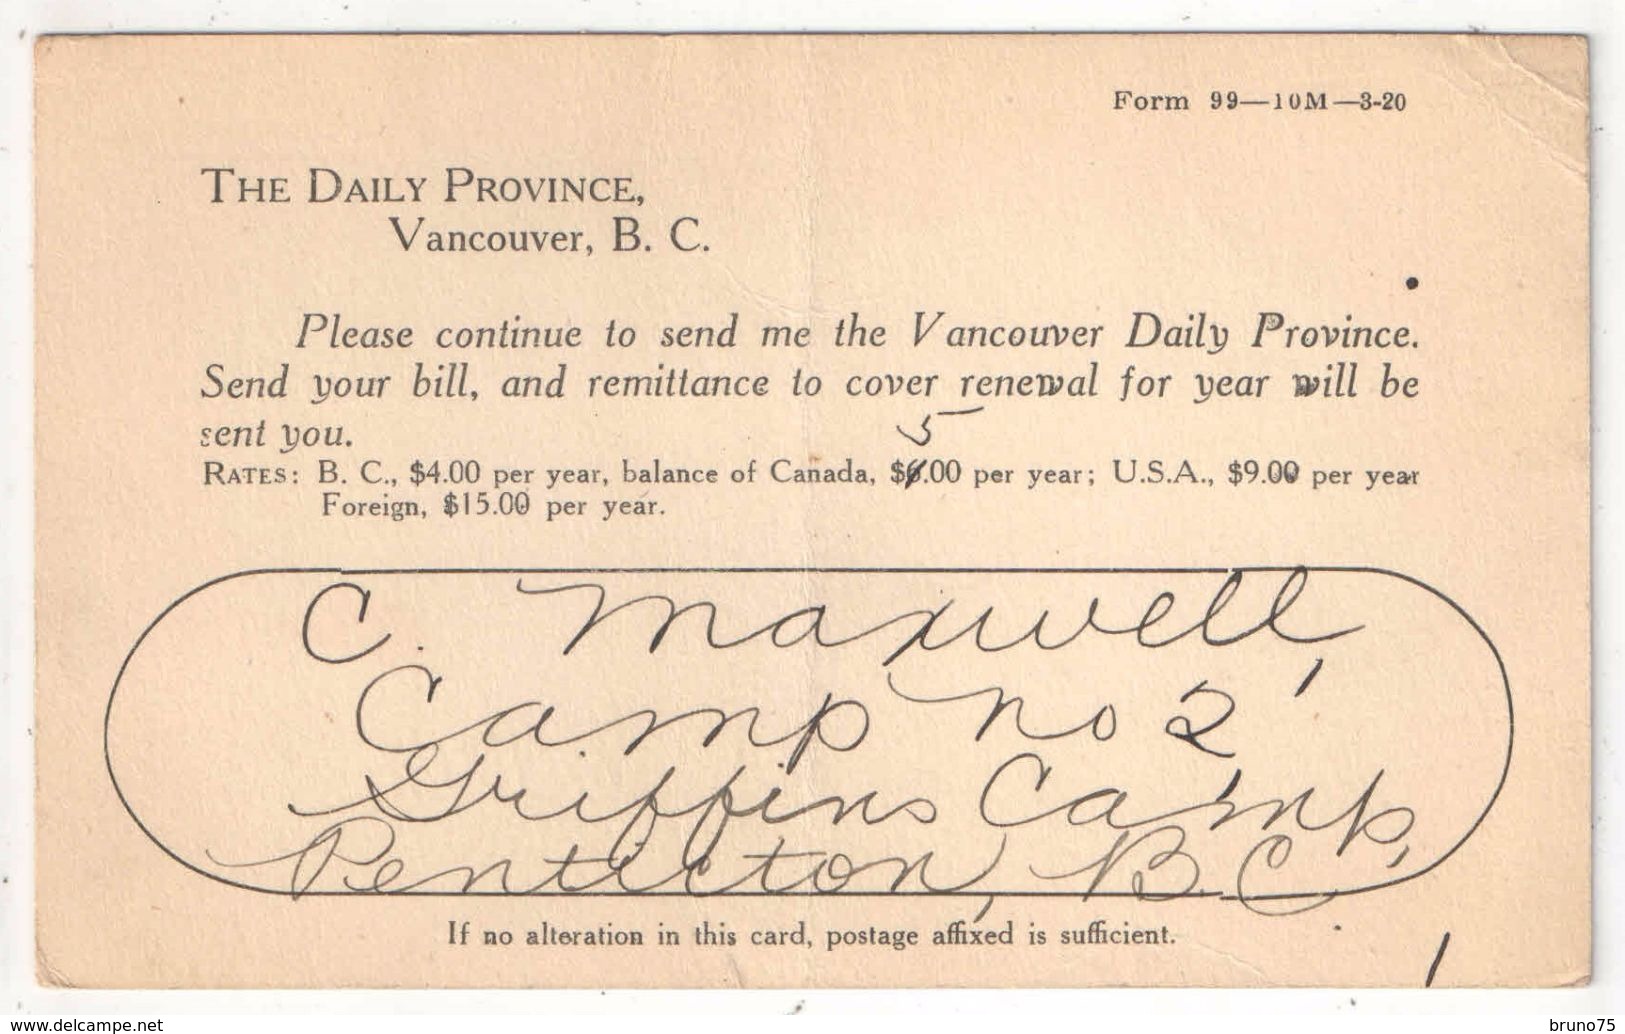 Form 99—10M—3-20
THE DAILY PROVINCE,
Vancouver, B. C.
Please continue to send me the Vancouver Daily Province.
Send your bill, and remittance to cover renewal for year will be
sent you.
5
RATES: B. C., $4.00 per year, balance of Canada, $6.00 per year; U.S.A., $9.00 per year
Foreign, $15.00 per year.
C. Maxwell,
Camp no 2
Griffins Camp,
Penticton, B.C.
If no alteration in this card, postage affixed is sufficient.
www.delcampe.net
bruno75